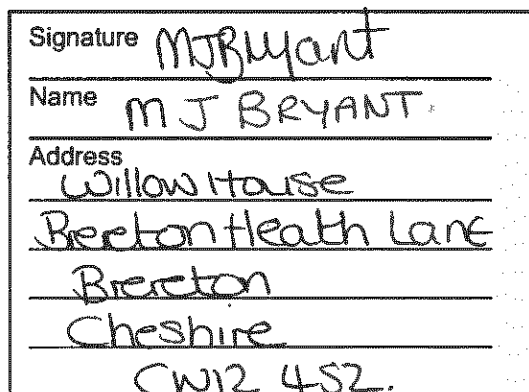 Signature MJBryant
Name M J BRYANT.
Address
Willow House
Brereton Heath Lane
Brereton
Cheshire
CW12 4SZ.